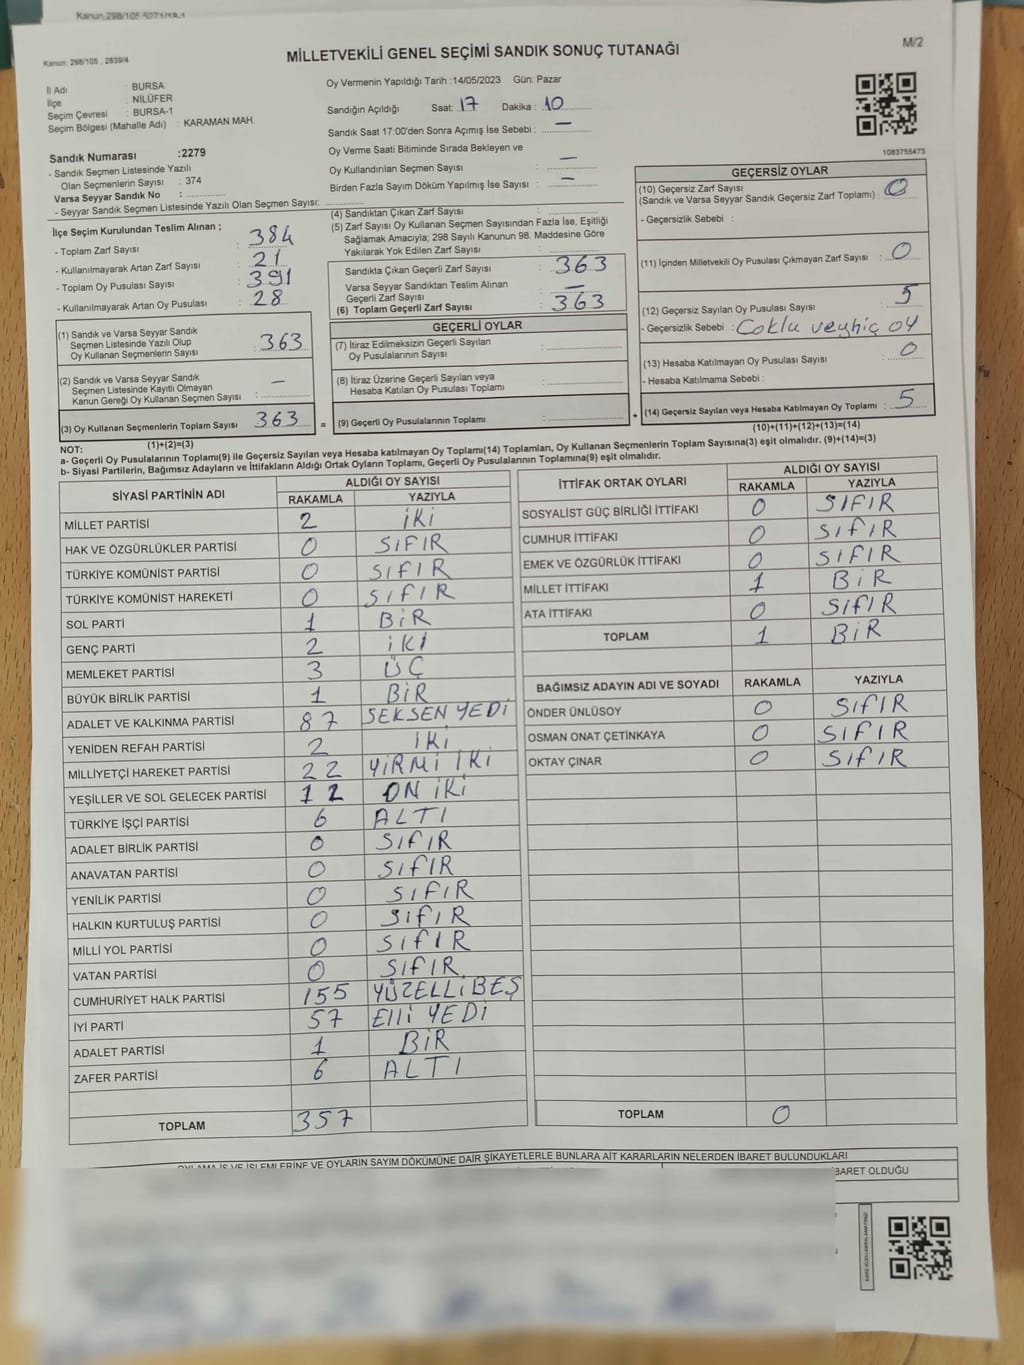 Kanun.298/105
Kanun. 298/105 , 2839/4
MİLLETVEKİLİ GENEL SEÇİMİ SANDIK SONUÇ TUTANAĞI
M/2
İl Adı BURSA
İlçe : NİLÜFER
Seçim Çevresi : BURSA-1
Seçim Bölgesi (Mahalle Adı) : KARAMAN MAH.
Oy Vermenin Yapıldığı Tarih :14/05/2023 Gün: Pazar
Sandığın Açıldığı Saat: 17 Dakika : 10
Sandık Saat 17:00'den Sonra Açımış İse Sebebi : —
Oy Verme Saati Bitiminde Sırada Bekleyen ve
Oy Kullandırılan Seçmen Sayısı : —
Birden Fazla Sayım Döküm Yapılmış İse Sayısı : —
1083755473
Sandık Numarası :2279
- Sandık Seçmen Listesinde Yazılı
Olan Seçmenlerin Sayısı : 374
Varsa Seyyar Sandık No :
- Seyyar Sandık Seçmen Listesinde Yazılı Olan Seçmen Sayısı:
İlçe Seçim Kurulundan Teslim Alınan ;
- Toplam Zarf Sayısı : 384
- Kullanılmayarak Artan Zarf Sayısı : 21
- Toplam Oy Pusulası Sayısı : 391
- Kullanılmayarak Artan Oy Pusulası : 28
(1) Sandık ve Varsa Seyyar Sandık
Seçmen Listesinde Yazılı Olup
Oy Kullanan Seçmenlerin Sayısı : 363
(2) Sandık ve Varsa Seyyar Sandık
Seçmen Listesinde Kayıtlı Olmayan
Kanun Gereği Oy Kullanan Seçmen Sayısı : —
(3) Oy Kullanan Seçmenlerin Toplam Sayısı : 363
(1)+(2)=(3)
(4) Sandıktan Çıkan Zarf Sayısı :
(5) Zarf Sayısı Oy Kullanan Seçmen Sayısından Fazla İse, Eşitliği
Sağlamak Amacıyla; 298 Sayılı Kanunun 98. Maddesine Göre
Yakılarak Yok Edilen Zarf Sayısı :
Sandıkta Çıkan Geçerli Zarf Sayısı : 363
Varsa Seyyar Sandıktan Teslim Alınan
Geçerli Zarf Sayısı : —
(6) Toplam Geçerli Zarf Sayısı : 363
GEÇERLİ OYLAR
(7) İtiraz Edilmeksizin Geçerli Sayılan
Oy Pusulalarının Sayısı :
(8) İtiraz Üzerine Geçerli Sayılan veya
Hesaba Katılan Oy Pusulası Toplamı :
= (9) Geçerli Oy Pusulalarının Toplamı : +
GEÇERSİZ OYLAR
(10) Geçersiz Zarf Sayısı
(Sandık ve Varsa Seyyar Sandık Geçersiz Zarf Toplamı) : 0
- Geçersizlik Sebebi :
(11) İçinden Milletvekili Oy Pusulası Çıkmayan Zarf Sayısı : 0
(12) Geçersiz Sayılan Oy Pusulası Sayısı : 5
- Geçersizlik Sebebi : Çoklu veyhiç oy
(13) Hesaba Katılmayan Oy Pusulası Sayısı : 0
- Hesaba Katılmama Sebebi :
(14) Geçersiz Sayılan veya Hesaba Katılmayan Oy Toplamı : 5
(10)+(11)+(12)+(13)=(14)
NOT:
a- Geçerli Oy Pusulalarının Toplamı(9) ile Geçersiz Sayılan veya Hesaba katılmayan Oy Toplamı(14) Toplamları, Oy Kullanan Seçmenlerin Toplam Sayısına(3) eşit olmalıdır. (9)+(14)=(3)
b- Siyasi Partilerin, Bağımsız Adayların ve İttifakların Aldığı Ortak Oyların Toplamı, Geçerli Oy Pusulalarının Toplamına(9) eşit olmalıdır.
SİYASİ PARTİNİN ADI ALDIĞI OY SAYISI
RAKAMLA YAZIYLA
MİLLET PARTİSİ 2 İKİ
HAK VE ÖZGÜRLÜKLER PARTİSİ 0 SIFIR
TÜRKİYE KOMÜNİST PARTİSİ 0 SIFIR
TÜRKİYE KOMÜNİST HAREKETİ 0 SIFIR
SOL PARTİ 1 BİR
GENÇ PARTİ 2 İKİ
MEMLEKET PARTİSİ 3 ÜÇ
BÜYÜK BİRLİK PARTİSİ 1 BİR
ADALET VE KALKINMA PARTİSİ 87 SEKSEN YEDİ
YENİDEN REFAH PARTİSİ 2 İKİ
MİLLİYETÇİ HAREKET PARTİSİ 22 YİRMİ İKİ
YEŞİLLER VE SOL GELECEK PARTİSİ 12 ON İKİ
TÜRKİYE İŞÇİ PARTİSİ 6 ALTI
ADALET BİRLİK PARTİSİ 0 SIFIR
ANAVATAN PARTİSİ 0 SIFIR
YENİLİK PARTİSİ 0 SIFIR
HALKIN KURTULUŞ PARTİSİ 0 SIFIR
MİLLİ YOL PARTİSİ 0 SIFIR
VATAN PARTİSİ 0 SIFIR
CUMHURİYET HALK PARTİSİ 155 YÜZELLİBEŞ
İYİ PARTİ 57 ELLİ YEDİ
ADALET PARTİSİ 1 BİR
ZAFER PARTİSİ 6 ALTI
TOPLAM 357
İTTİFAK ORTAK OYLARI ALDIĞI OY SAYISI
RAKAMLA YAZIYLA
SOSYALİST GÜÇ BİRLİĞİ İTTİFAKI 0 SIFIR
CUMHUR İTTİFAKI 0 SIFIR
EMEK VE ÖZGÜRLÜK İTTİFAKI 0 SIFIR
MİLLET İTTİFAKI 1 BİR
ATA İTTİFAKI 0 SIFIR
TOPLAM 1 BİR
BAĞIMSIZ ADAYIN ADI VE SOYADI RAKAMLA YAZIYLA
ÖNDER ÜNLÜSOY 0 SIFIR
OSMAN ONAT ÇETİNKAYA 0 SIFIR
OKTAY ÇINAR 0 SIFIR
TOPLAM 0
OYLAMA İŞ VE İŞLEMLERİNE VE OYLARIN SAYIM DÖKÜMÜNE DAİR ŞİKAYETLERLE BUNLARA AİT KARARLARIN NELERDEN İBARET BULUNDUKLARI
İBARET OLDUĞU